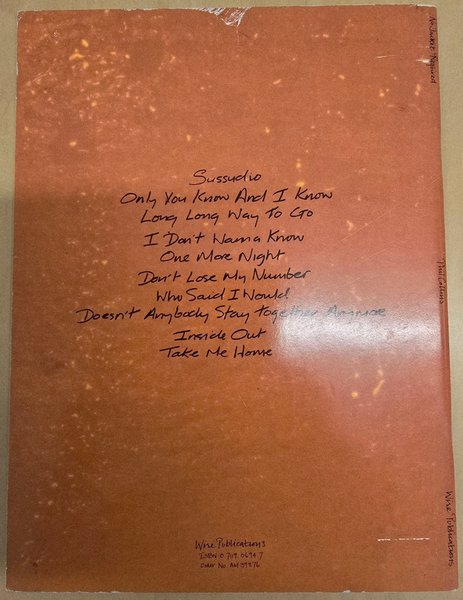 Sussudio
Only You Know And I Know
Long Long Way To Go
I Don't Wanna Know
One More Night
Don't Lose My Number
Who Said I Would
Doesn't Anybody Stay Together Anymore
Inside Out
Take Me Home
Wise Publications
ISBN 0 7119 0694 7
Order No AM 39276
No Jacket Required
Phil Collins
Wise Publications